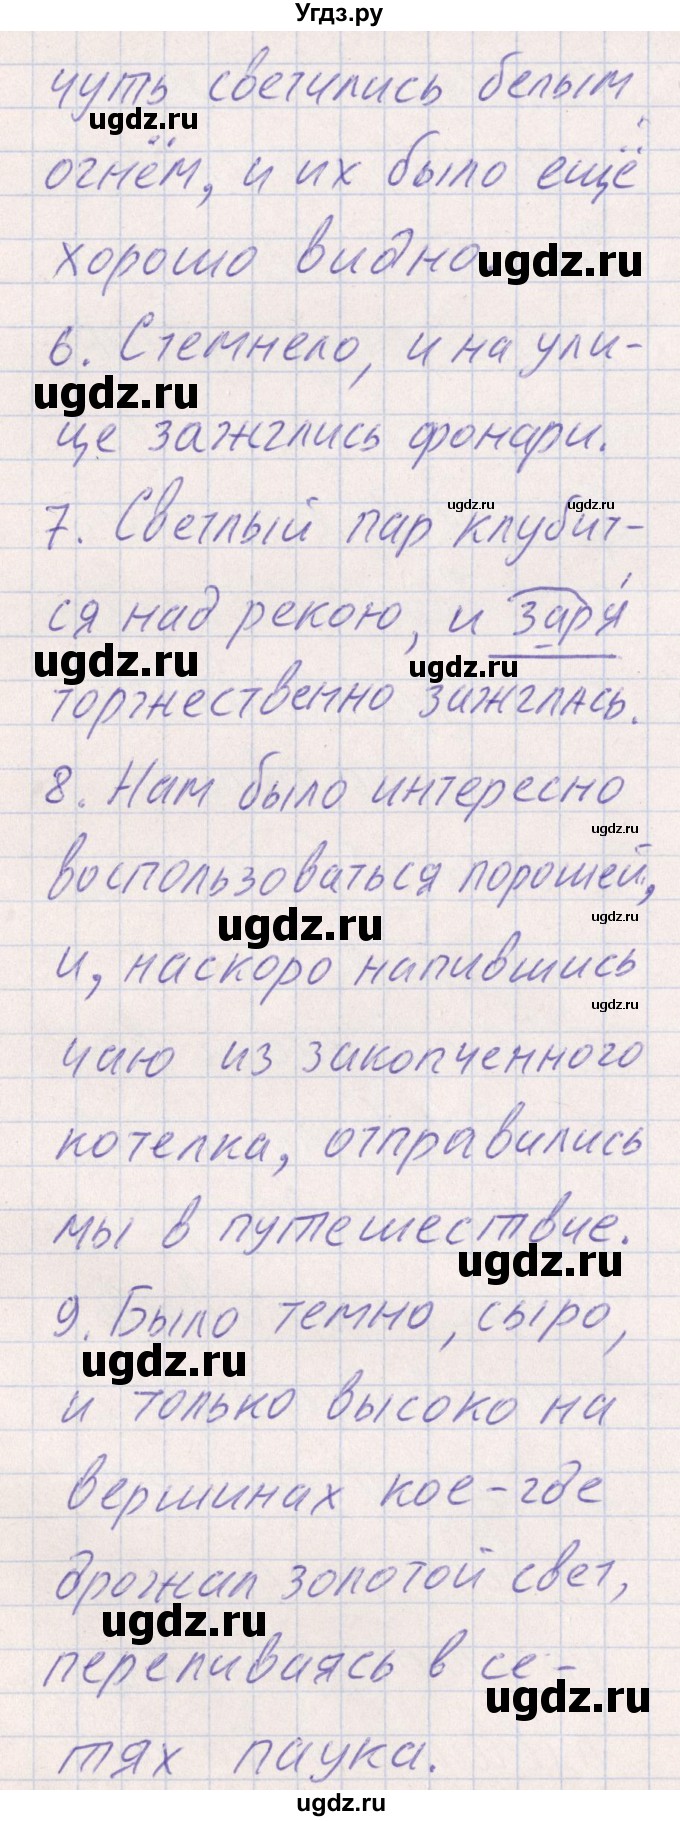 Угдз.ру
чуть светились белым
ugdz.ru
огнём, и их было ещё
хорошо видно
ugdz.ru
6. Стемнело, и на ули-
ugdz.ru
це зажглись фонари.
ugdz.ru ugdz.ru
7. Светлый пар клубит-
ся над рекою, и заря́
ugdz.ru ugdz.ru
торжественно зажглась.
8. Нам было интересно
ugdz.ru
воспользоваться порошей,
ugdz.ru ugdz.ru
и, наскоро напившись
ugdz.ru
чаю из закопченного
котелка, отправились
мы в путешествие.
ugdz.ru
9. Было темно, сыро,
ugdz.ru
и только высоко на
вершинах кое-где
дрожал золотой свет,
ugdz.ru
переливаясь в се-
ugdz.ru
тях паука.
ugdz.ru